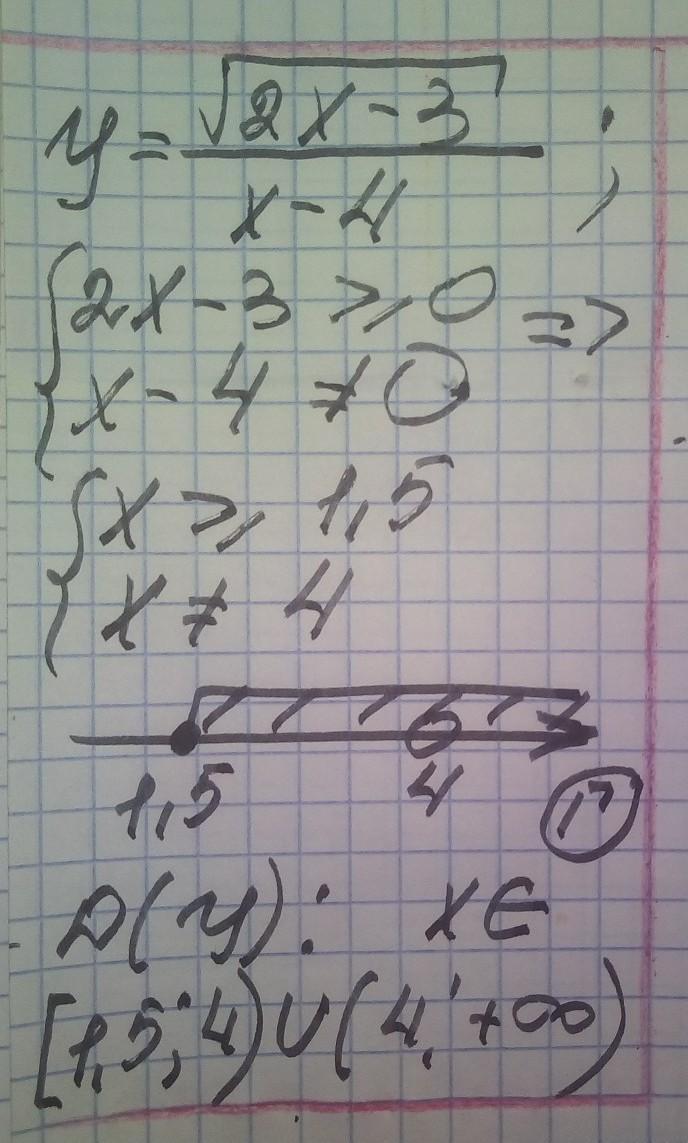 y = √(2x - 3) / (x - 4) ;
{ 2x - 3 ⩾ 0 =>
{ x - 4 ≠ 0
{ x ⩾ 1,5
{ x ≠ 4
1,5 4
D(y): x ∈
[1,5; 4) ∪ (4; +∞)